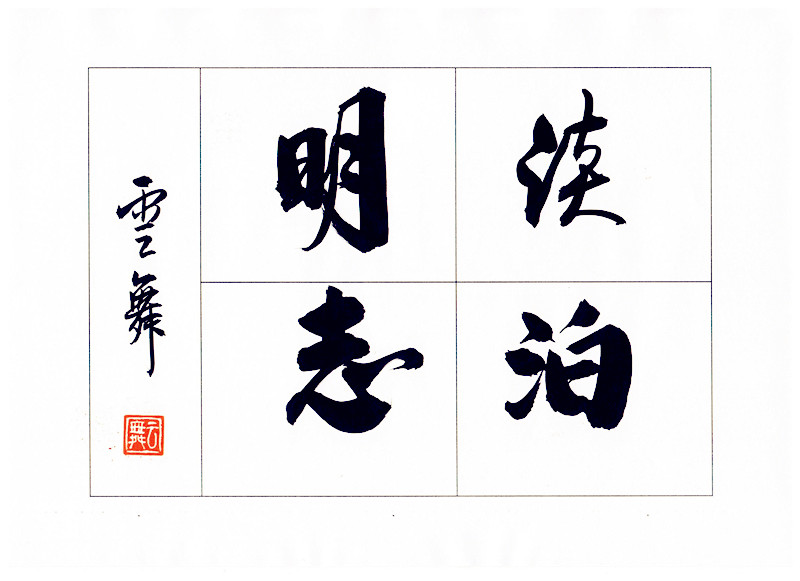 淡泊
明志
雲舞
云舞